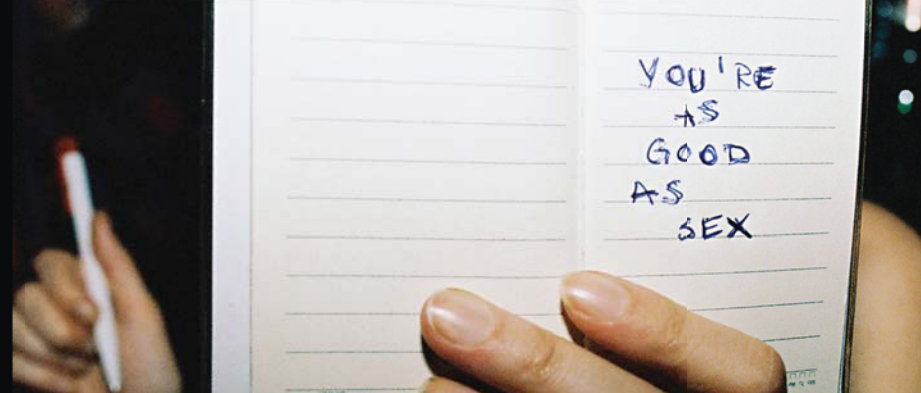 YOU'RE
AS
GOOD
AS
SEX